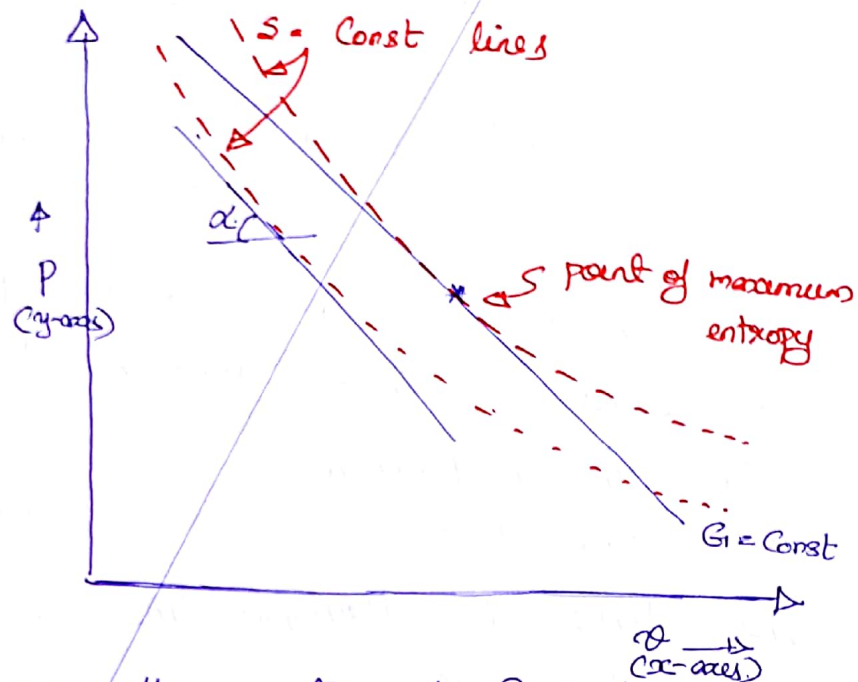 S = Const lines
α
P
(y-axis)
point of maximum
entropy
G = Const
v
(x-axes)